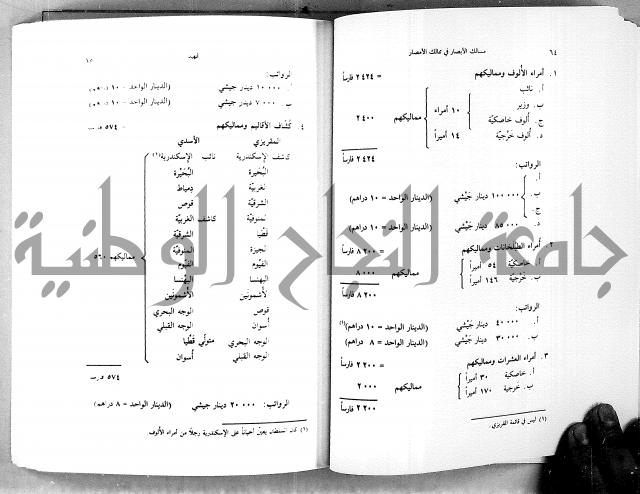 ٦٤ مسالك الأبصار في ممالك الأمصار
١. أمراء الألوف ومماليكهم = ٢٤٢٤ فارساً
أ. نائب
ب. وزير
ج. ألوف خاصكيّة
١٠ أمراء
د. ألوف خَرْجيّة ١٤ أميراً
مماليكهم ٢٤٠٠
٢٤٢٤ فارساً
الرواتب:
أ.
ب. ١٠٠٠٠٠ دينار جَيْشي (الدينار الواحد = ١٠ دراهم)
ج.
د. ٨٥٠٠٠ دينار جَيْشي (الدينار الواحد = ١٠ دراهم)
٢. أمراء الطبلخانات ومماليكهم = ٨٢٠٠ فارساً
أ. خاصكيّة ٥٤ أميراً
ب. خَرْجيّة ١٤٦ أميراً
مماليكهم ٨٠٠٠
٨٢٠٠ فارساً
الرواتب:
أ. ٤٠٠٠٠ دينار جَيْشي (الدينار الواحد = ١٠ دراهم)(١)
ب. ٣٠٠٠٠ دينار جَيْشي (الدينار الواحد = ٨ دراهم)
٣. أمراء العشرات ومماليكهم = ٢٢٠٠ فارساً
أ. خاصكية ٣٠ أميراً
ب. خرجية ١٧٠ أميراً
مماليكهم ٢٠٠٠
٢٢٠٠ فارساً
(١) ليس في قائمة المقريزي.
الرواتب:
أ. ١٠٠٠٠ دينار جيشي (الدينار الواحد = ١٠
ب. ٧٠٠٠ دينار جيشي (الدينار الواحد = ١٠
٤. كُشّاف الأقاليم ومماليكهم = ٥٧٤
المقريزي الأسدي
كاشف الإسكندرية نائب الإسكندرية(١)
البُحَيرة البُحَيْرة
الغربيّة دِمياط
الشرقيّة قوص
المنوفيّة كاشف الغربية
قَطْيا الشرقيّة
الجيزة المنوفيّة
الفيّوم الفيّوم
البهنسا البهْنسا
الأشمونَين الأشمونَين
قوص الوجه البحري
أسوان الوجه القبلي
الوجه البحري متولّي قَطْيا
الوجه القبلي أسوان
مماليكهم ٥٦٠
٥٧٤
الرواتب: ٢٠٠٠٠ دينار جيشي (الدينار الواحد = ٨ دراهم)
(١) كان السلطان يعيّن أحياناً على الإسكندرية رجلاً من أمراء الألوف.
جامعة النجاح الوطنية